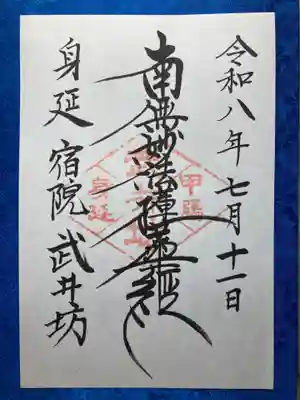 令和八年七月十一日
南無妙法蓮華経
身延 宿院 武井坊
甲斐
身延